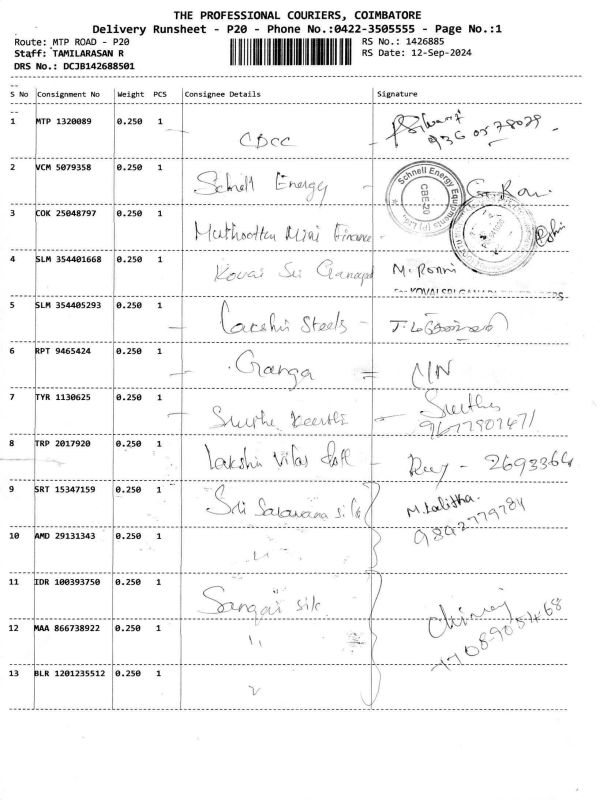 THE PROFESSIONAL COURIERS, COIMBATORE
Delivery Runsheet - P20 - Phone No.:0422-3505555 - Page No.:1
Route: MTP ROAD - P20 RS No.: 1426885
Staff: TAMILARASAN R RS Date: 12-Sep-2024
DRS No.: DCJB142688501
S No Consignment No Weight PCS Consignee Details Signature
1 MTP 1320089 0.250 1 CDCC
2 VCM 5079358 0.250 1 Schnell Energy
Schnell Energy Equipments (P) Ltd.
CBE-20
3 COK 25048797 0.250 1 Muthoottu Mini Finance
4 SLM 354401668 0.250 1 Kovai Sri M. Ronni
5 SLM 354405293 0.250 1 Lakshmi Steels
6 RPT 9465424 0.250 1 Ganga
7 TYR 1130625 0.250 1
9677907471
8 TRP 2017920 0.250 1 Lakshmi Vilas - 2693364
9 SRT 15347159 0.250 1 Sri Saravana silk M. Lalitha.
9842779784
10 AMD 29131343 0.250 1 "
11 IDR 100393750 0.250 1 silk
12 MAA 866738922 0.250 1 "
13 BLR 1201235512 0.250 1 "